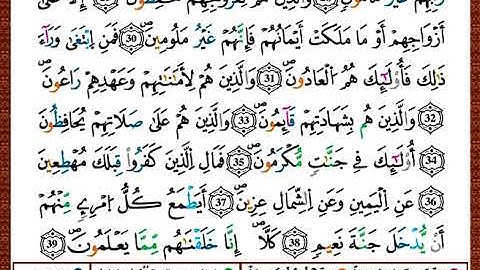 رَبِّهِمْ غَيْرُ مَأْمُونٍ (28) وَالَّذِينَ هُمْ لِفُرُوجِهِمْ حَافِظُونَ (29) إِلَّا عَلَىٰ
أَزْوَاجِهِمْ أَوْ مَا مَلَكَتْ أَيْمَانُهُمْ فَإِنَّهُمْ غَيْرُ مَلُومِينَ (30) فَمَنِ ابْتَغَىٰ وَرَاءَ
ذَٰلِكَ فَأُولَٰئِكَ هُمُ الْعَادُونَ (31) وَالَّذِينَ هُمْ لِأَمَانَاتِهِمْ وَعَهْدِهِمْ رَاعُونَ
(32) وَالَّذِينَ هُم بِشَهَادَتِهِمْ قَائِمُونَ (33) وَالَّذِينَ هُمْ عَلَىٰ صَلَاتِهِمْ يُحَافِظُونَ
(34) أُولَٰئِكَ فِي جَنَّاتٍ مُّكْرَمُونَ (35) فَمَالِ الَّذِينَ كَفَرُوا قِبَلَكَ مُهْطِعِينَ
(36) عَنِ الْيَمِينِ وَعَنِ الشِّمَالِ عِزِينَ (37) أَيَطْمَعُ كُلُّ امْرِئٍ مِّنْهُمْ
أَن يُدْخَلَ جَنَّةَ نَعِيمٍ (38) كَلَّا إِنَّا خَلَقْنَاهُم مِّمَّا يَعْلَمُونَ (39)